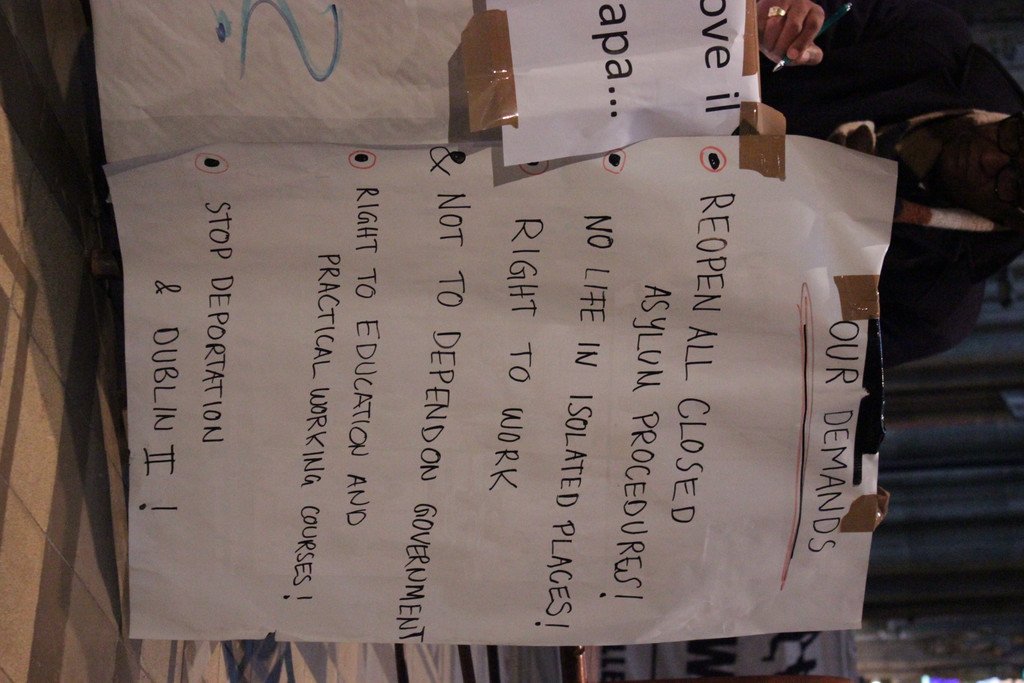 OUR DEMANDS
REOPEN ALL CLOSED
ASYLUM PROCEDURES!
NO LIFE IN ISOLATED PLACES!
RIGHT TO WORK
& NOT TO DEPEND ON GOVERNMENT
RIGHT TO EDUCATION AND
PRACTICAL WORKING COURSES!
STOP DEPORTATION
& DUBLIN II !
ove il
apa...